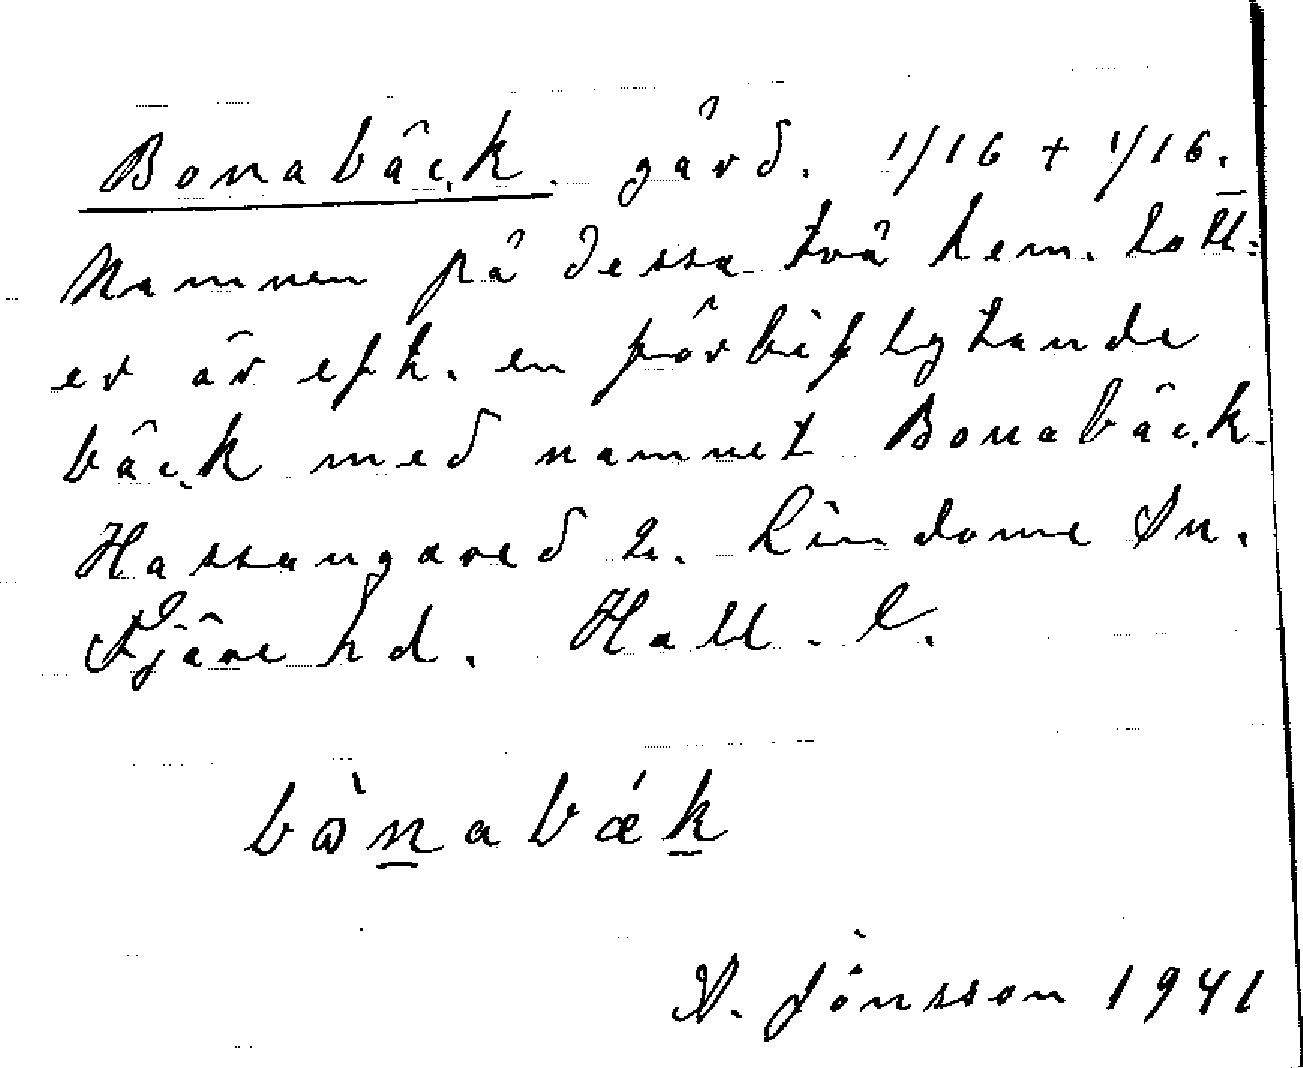 Bonabäck. gård. 1/16 + 1/16.
Namnen på dessa två hem. lott-
er är efh. en förbiflytande
bäck med namnet Bonabäck.
Hassungared 2. Lindome Sn.
Fjäre hd. Hall. l.
bὼnabǽk
N. Jönsson 1941